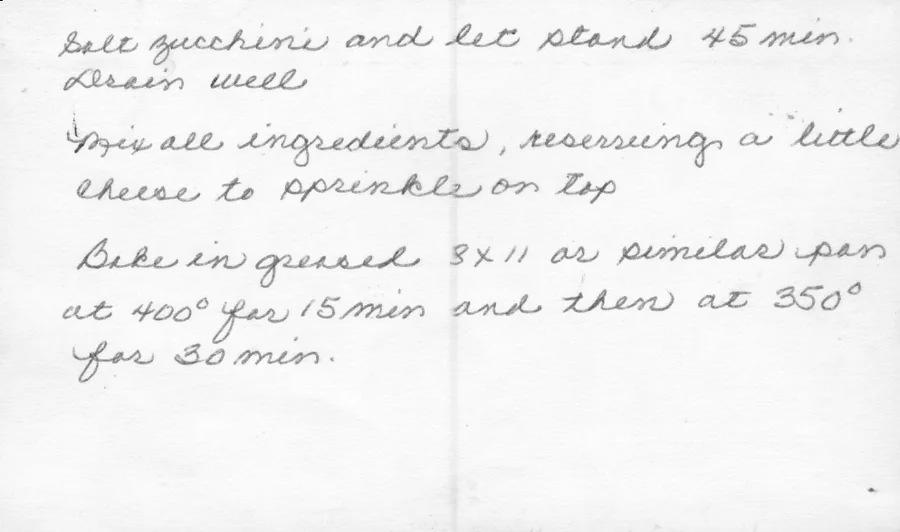 Salt zucchini and let stand 45 min.
Drain well
Mix all ingredients, reserving a little
cheese to sprinkle on top
Bake in greased 8 x 11 or similar pan
at 400° for 15 min and then at 350°
for 30 min.